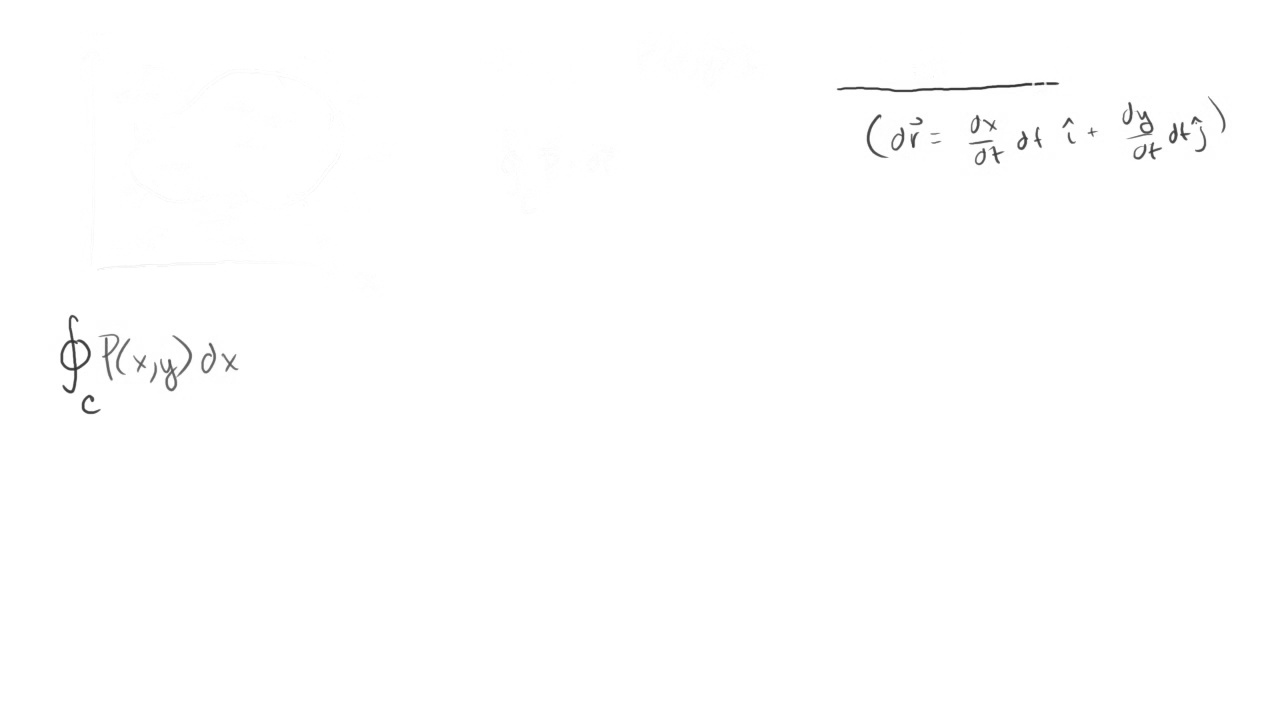 (dr⃗ = dx/dt dt î + dy/dt dt ĵ)
∮_C P(x,y) dx